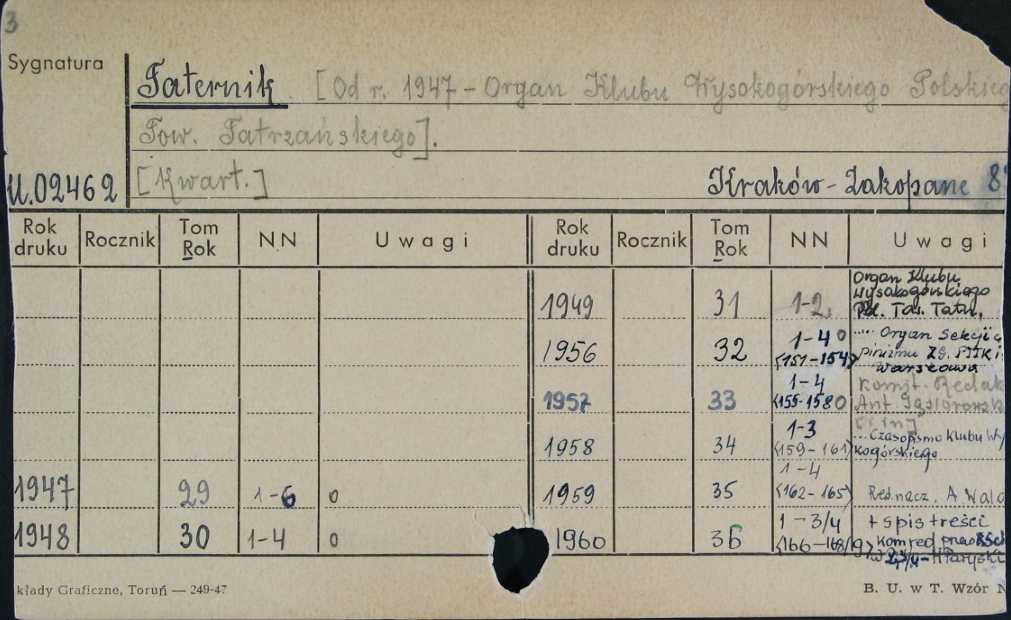 3
Sygnatura
Taternik [Od r. 1947 - Organ Klubu Wysokogórskiego Polskieg
Tow. Tatrzańskiego].
U.02462 [Kwart.] Kraków - Zakopane 8°
Rok druku Rocznik Tom Rok NN Uwagi Rok druku Rocznik Tom Rok NN Uwagi
1949 31 1-2 Organ Klubu Wysokogórskiego Pol. Tow. Tatrz.
1956 32 1-4 (151-154) .... Organ Sekcji a
pinizmu ZG. PTTK i
Warszawa
1957 33 1-4 (155-158) Komit. Redak
Ant. Gąsiorowsk
[i in]
1958 34 1-3 (159-161) ...Czasopismo Klubu Wy
kogórskiego
1947 29 1-6 0 1959 35 1-4 (162-165) Red. nacz. A. Wala
1948 30 1-4 0 1960 36 1-3/4 (166-168/9) + spis treści
kom red
w 2,3/4 - H
kłady Graficzne, Toruń — 249-47
B. U. w T. Wzór N